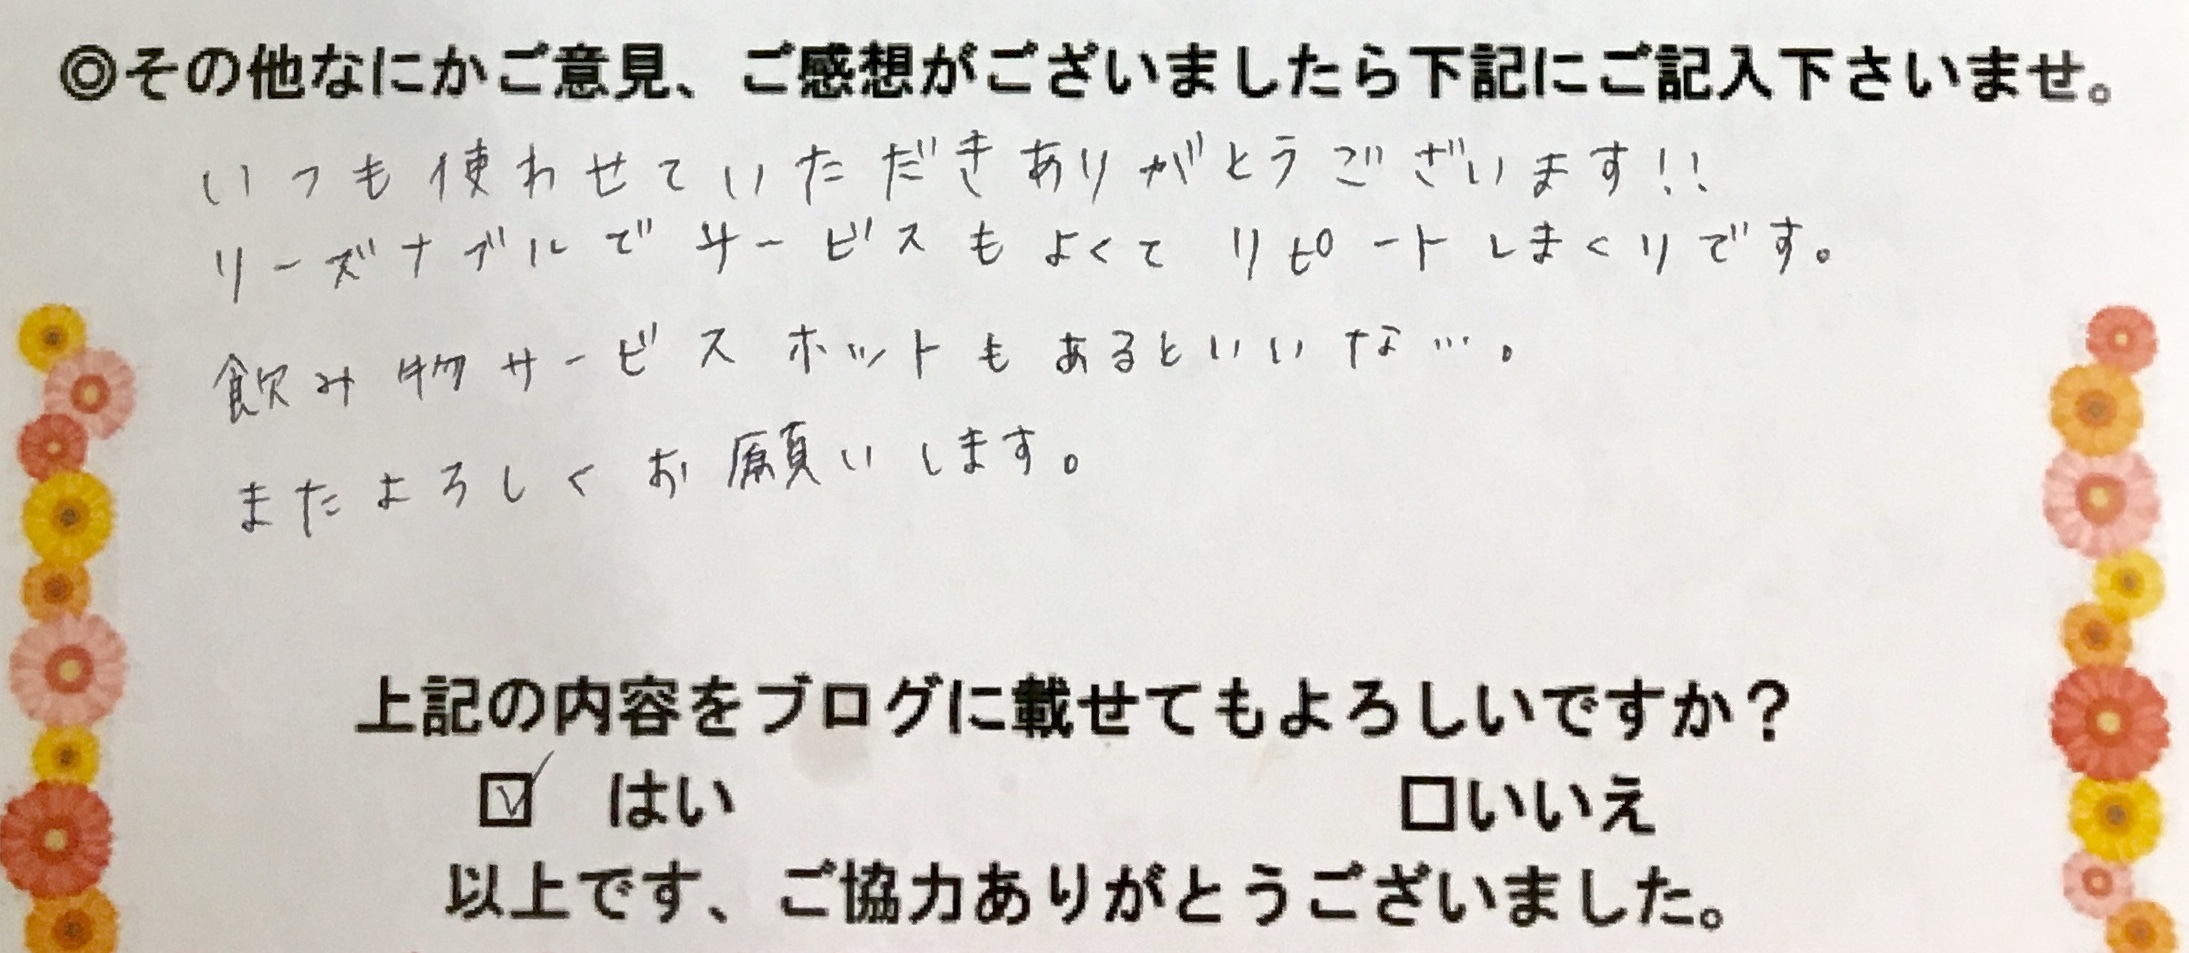 ◎その他なにかご意見、ご感想がございましたら下記にご記入下さいませ。
いつも使わせていただきありがとうございます!!
リーズナブルでサービスもよくてリピートしまくりです。
飲み物サービスホットもあるといいな…。
またよろしくお願いします。
上記の内容をブログに載せてもよろしいですか？
☑ はい □いいえ
以上です、ご協力ありがとうございました。